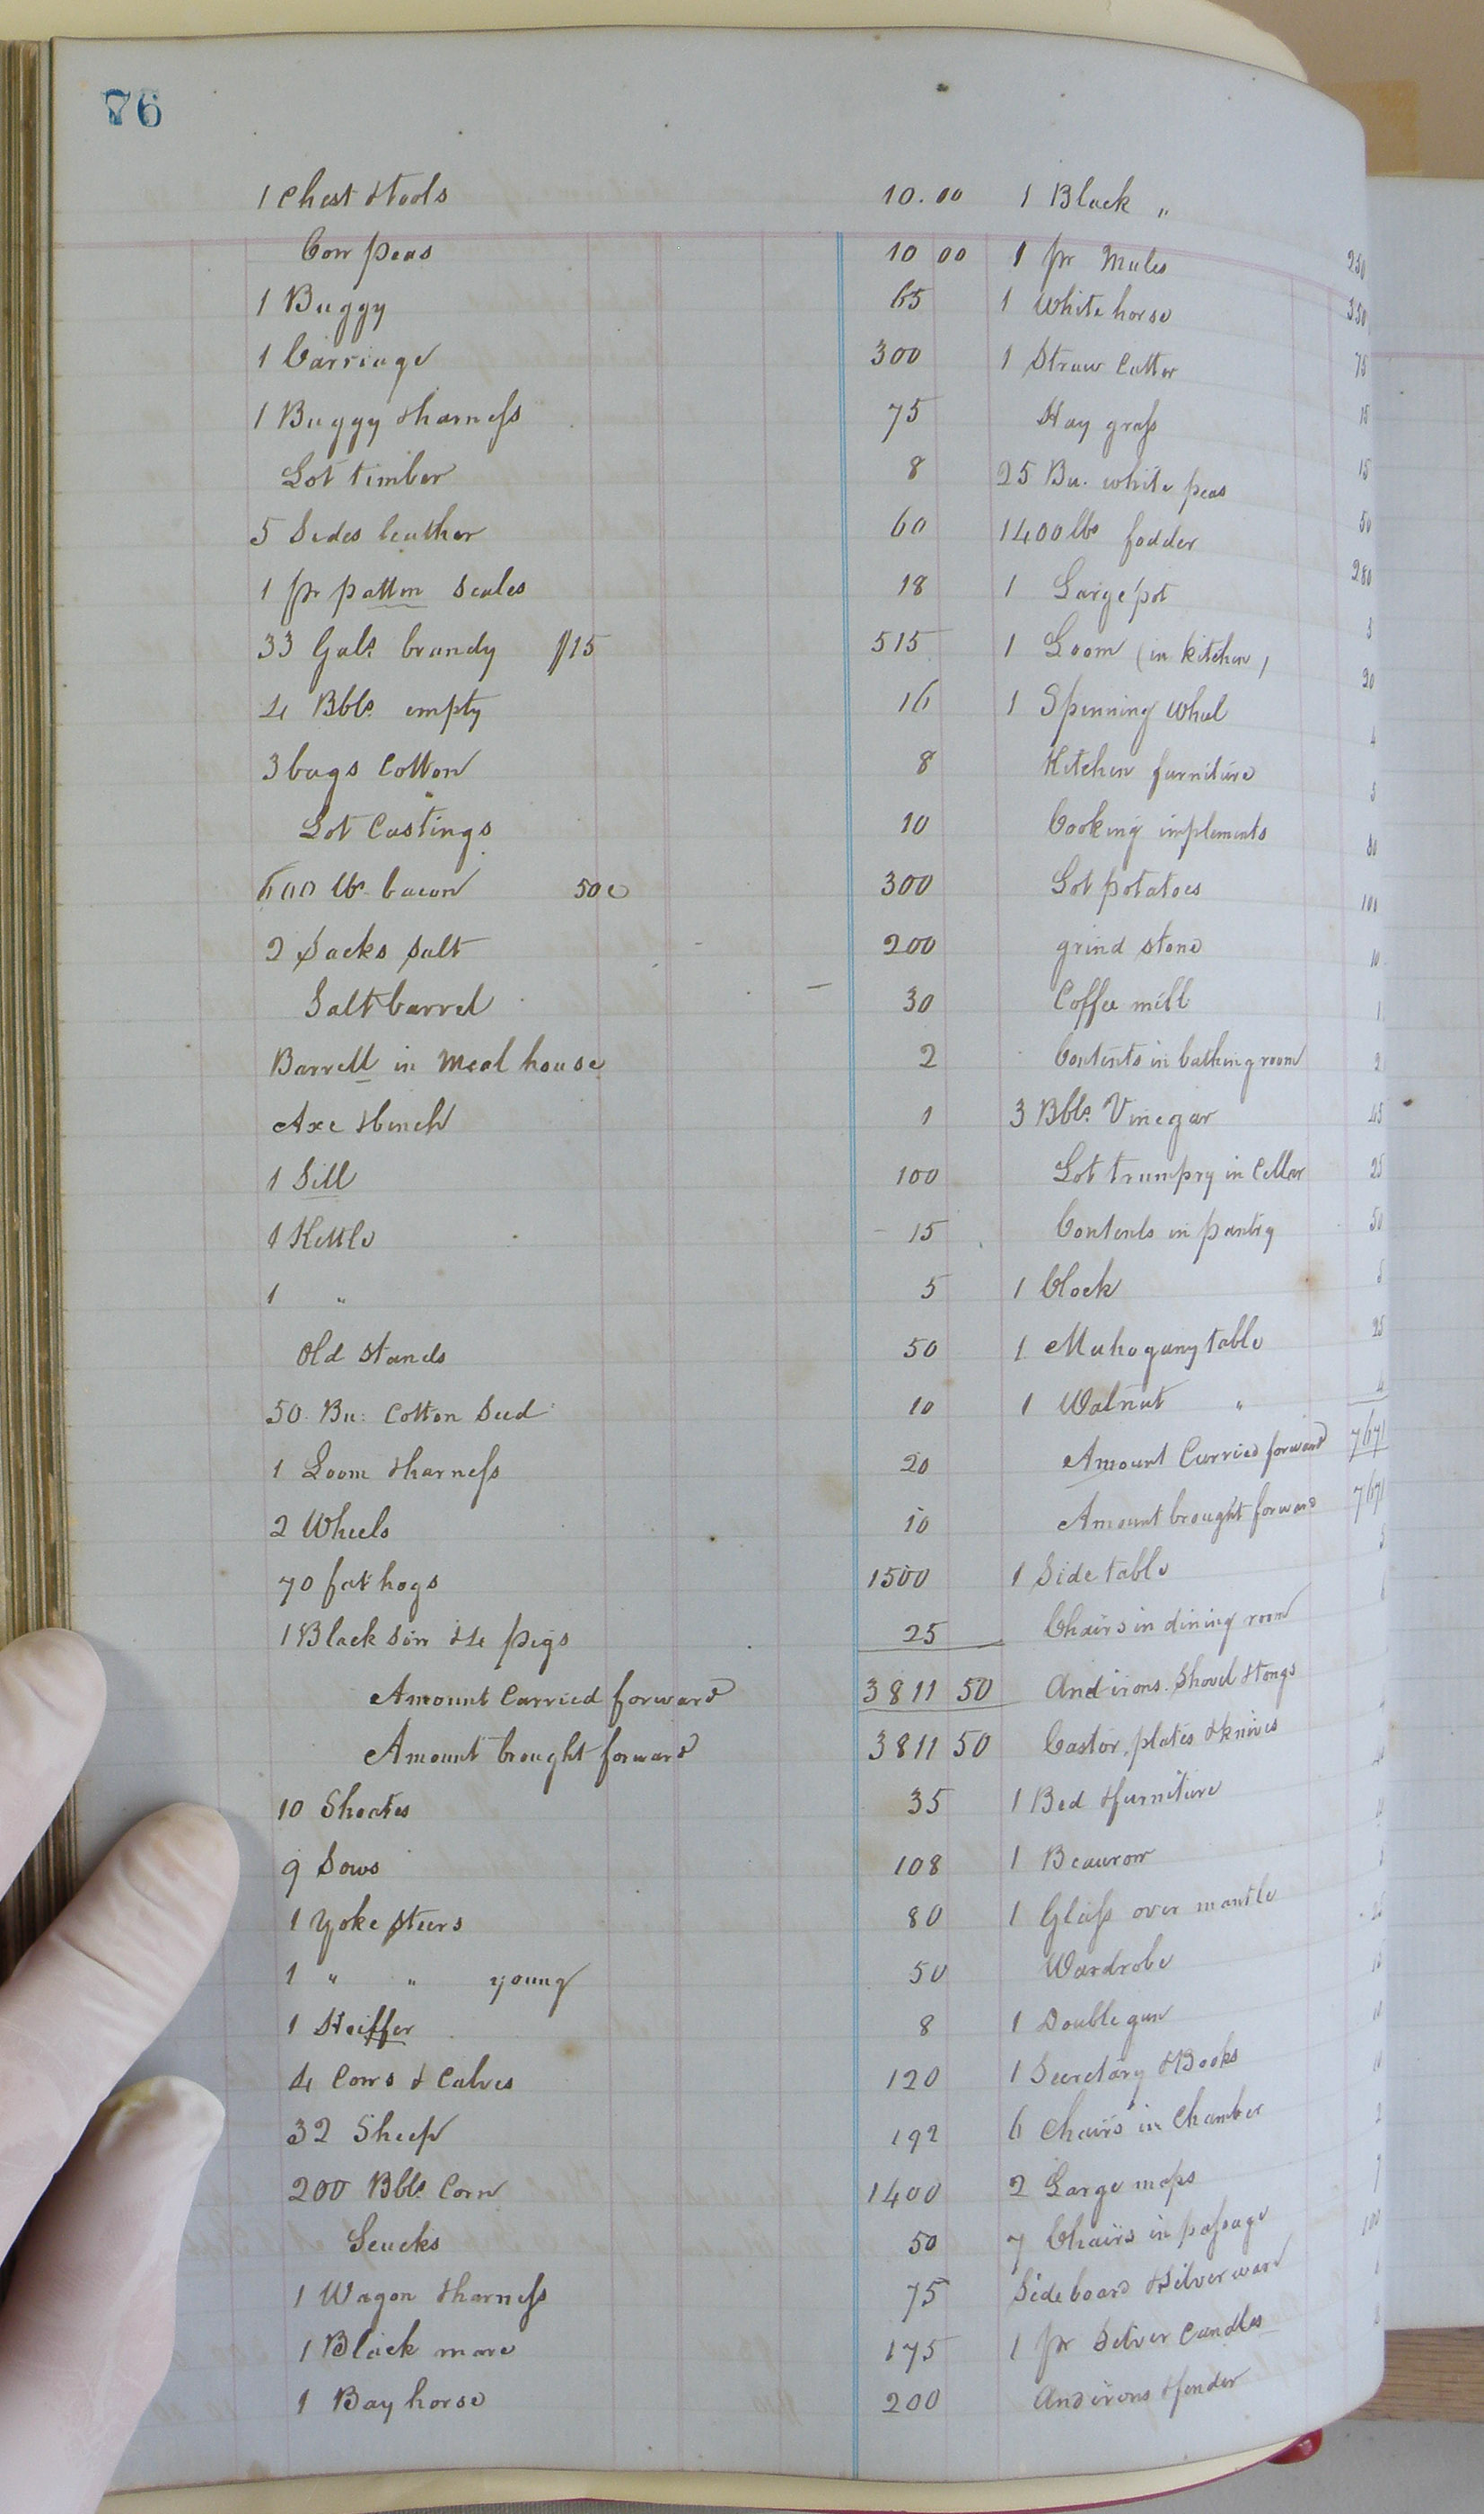 76
1 Chest & tools 10.00
Cow peas 10 00
1 Buggy 65
1 Carriage 300
1 Buggy & harness 75
Lot timber 8
5 Sides leather 60
1 pr patten Scales 18
33 Gals. brandy $15 515
4 Bbls. empty 16
3 bags Cotton 8
Lot Castings 10
600 lbs bacon 50c 300
2 Sacks Salt 200
Salt barrel 30
Barrell in Meal house 2
Axe & bench 1
1 Sill 100
1 Kettle 15
1 " 5
Old Stands 50
50 Bu: Cotton Seed 10
1 Loom & harness 20
2 Wheels 10
70 fat hogs 1500
1 Black Sow & 4 pigs 25
Amount Carried forward 3811 50
Amount brought forward 3811 50
10 Shoates 35
9 Sows 108
1 Yoke Steers 80
1 " " young 50
1 Heiffer 8
4 Cows & Calves 120
32 Sheep 192
200 Bbls. Corn 1400
50
1 Wagon & harness 75
1 Black mare 175
1 Bay horse 200
1 Black "
1 pr Mules 250
1 White horse 350
1 Straw Cutter 75
Hay grass 15
25 Bu. white peas 15
1400 lbs fodder 50
1 Large pot 280
1 Loom (in kitchen) 3
1 Spinning Wheel 20
Kitchen furniture 4
Cooking implements
Lot potatoes
grind stone 100
Coffee mill 10
Contents in bathing room 1
3 Bbls. Vinegar 2
Lot trumpry in Celler 45
Contents in pantry 25
1 Clock 50
1 Mahogany table
1 Walnut " 25
Amount Carried forward
Amount brought forward
1 Side table
Chairs in dining room
And irons. Shovel & tongs
Castor, plates & knives
1 Bed & furniture
1 Beaurow
1 Glass over mantle
Wardrobe
1 Double gun
1 Secretary & Books
6 Chairs in Chamber
2 Large maps
7 Chairs in passage
Side board & Silver ward
1 pr Silver Candles
Andirons & fender